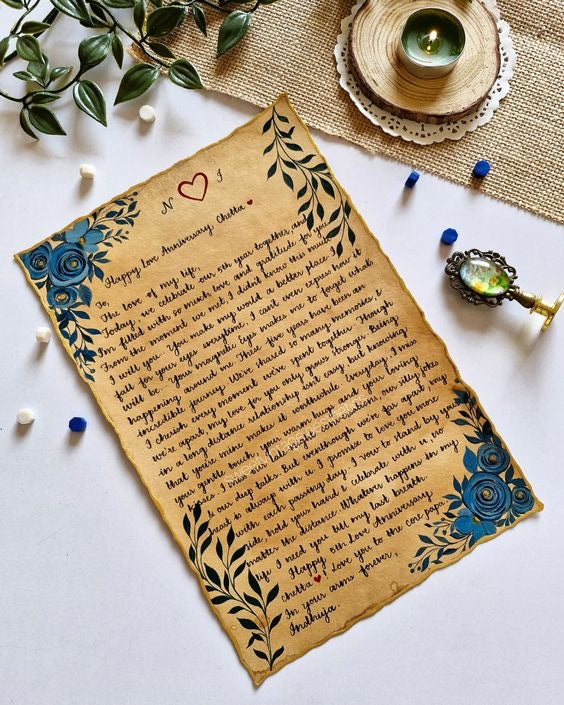 N ♡ I
Happy Love Anniversary Chetta ♥
To,
The love of my life,
Today, we celebrate our 5th year together and
I'm filled with so much love and gratitude for you.
From the moment we met, I didn't know this much
I will you. You make my world a better place. I
fall for your eyes everytime, I can't even express how it
will be.. Your magical Eye makes me to forget what
happening around me. These five years have been an
incredible journey. We've shared so many memories, &
I cherish every moment we've spent together. Though
we're apart, my love for you only grows stronger. Being
in a long distance relationship isn't easy but knowing
that you're mine makes it worthwhile. Everyday, I miss
your gentle touch, your warm hug and your loving
kisses. I miss our late night conversations, our silly jokes
& our deep talks. But eventhough we're far apart, my
heart is always with u. I promise to love you more
with each passing day. I vow to stand by your
side, hold your hand & celebrate with u, no
matter the distance. Whatever happens in my
life I need you till my last breath.
Happy 5th Love Anniversary
chetta ♥ Love you to the core papa
In your arms forever,
Indhuja.